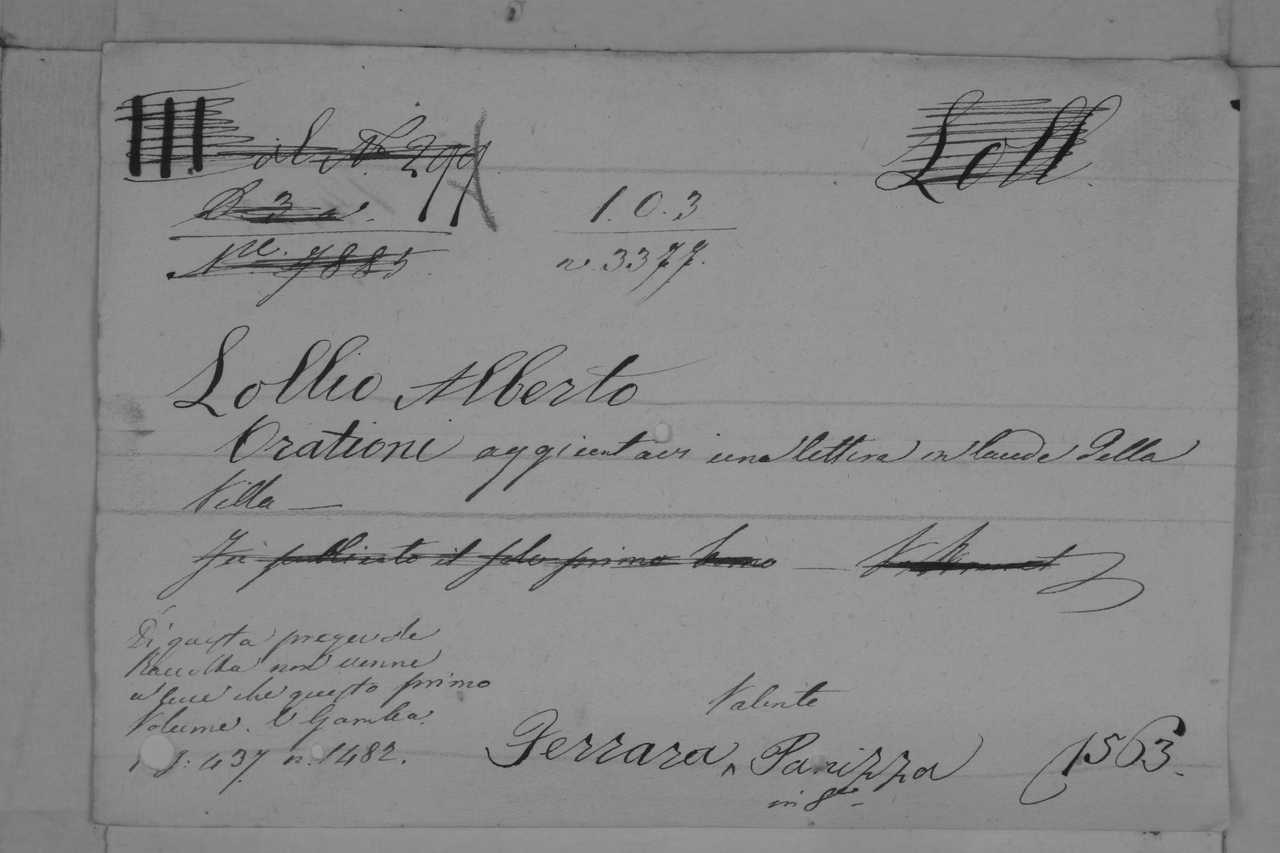 III
Loll
1. 0. 3
n. 3377.
Lollio Alberto
Orationi aggiuntavi una lettera in laude della
Villa —
fu publicato il solo primo tomo —
Di questa pregevole
Raccolta non venne
a luce che questo primo
Volume. V. Gamba.
437 n. 1482.
Valente
Ferrara, Panizza 1563.
in 8vo